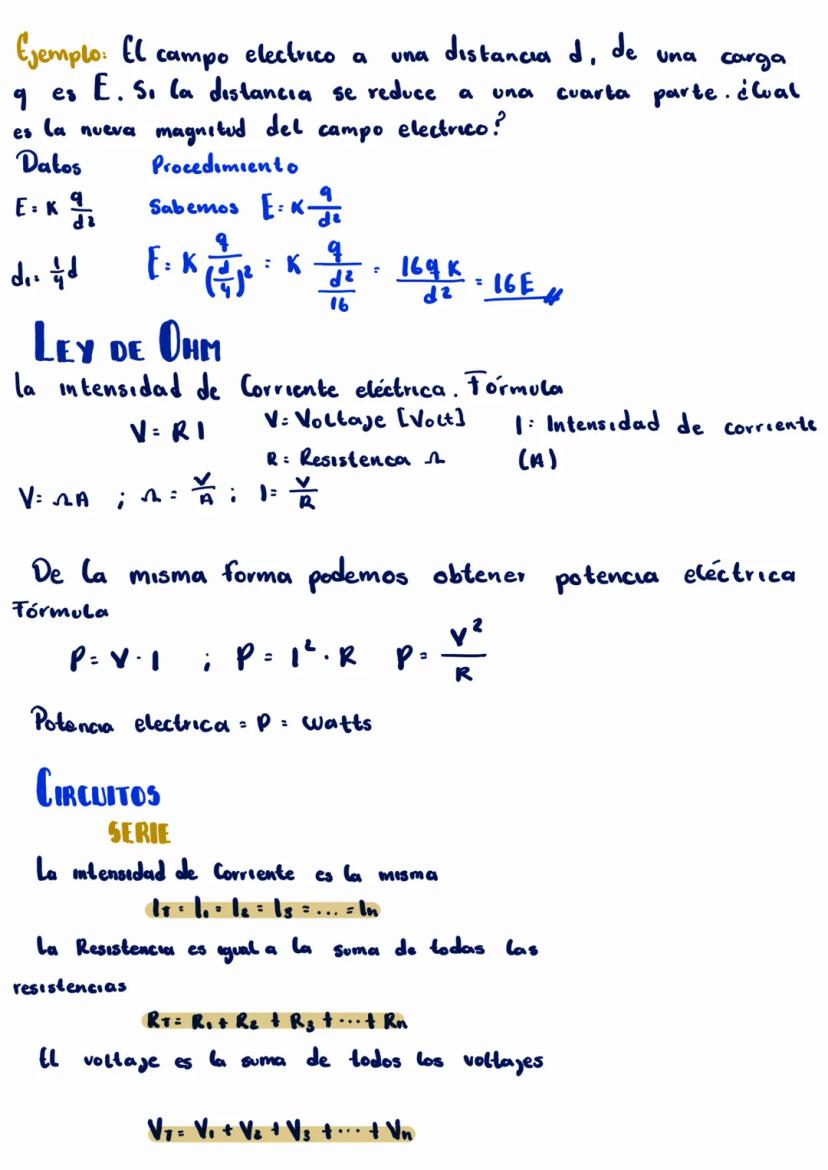 Ejemplo: El campo electrico a una distancia d, de una carga
q es E. Si la distancia se reduce a una cuarta parte. ¿Cual
es la nueva magnitud del campo electrico?
Datos Procedimiento
E = K q/d² Sabemos E = K q/d²
d₁ = 1/4 d E = K q/(d/4)² = K q/(d²/16) = 16qK/d² = 16E //
LEY DE OHM
la intensidad de Corriente eléctrica. Fórmula
V = R I V = Voltaje [Volt] I = Intensidad de corriente
R = Resistenca Ω (A)
V = ΩA ; Ω = V/A ; I = V/R
De la misma forma podemos obtener potencia eléctrica
Fórmula
P = V · I ; P = I² · R P = V²/R
Potencia electrica = P = Watts
CIRCUITOS
SERIE
La intensidad de Corriente es la misma
I_T = I₁ = I₂ = I₃ = ... = In
La Resistencia es igual a la suma de todas las
resistencias
R_T = R₁ + R₂ + R₃ + ... + Rn
El voltaje es la suma de todos los voltajes
V_T = V₁ + V₂ + V₃ + ... + Vn